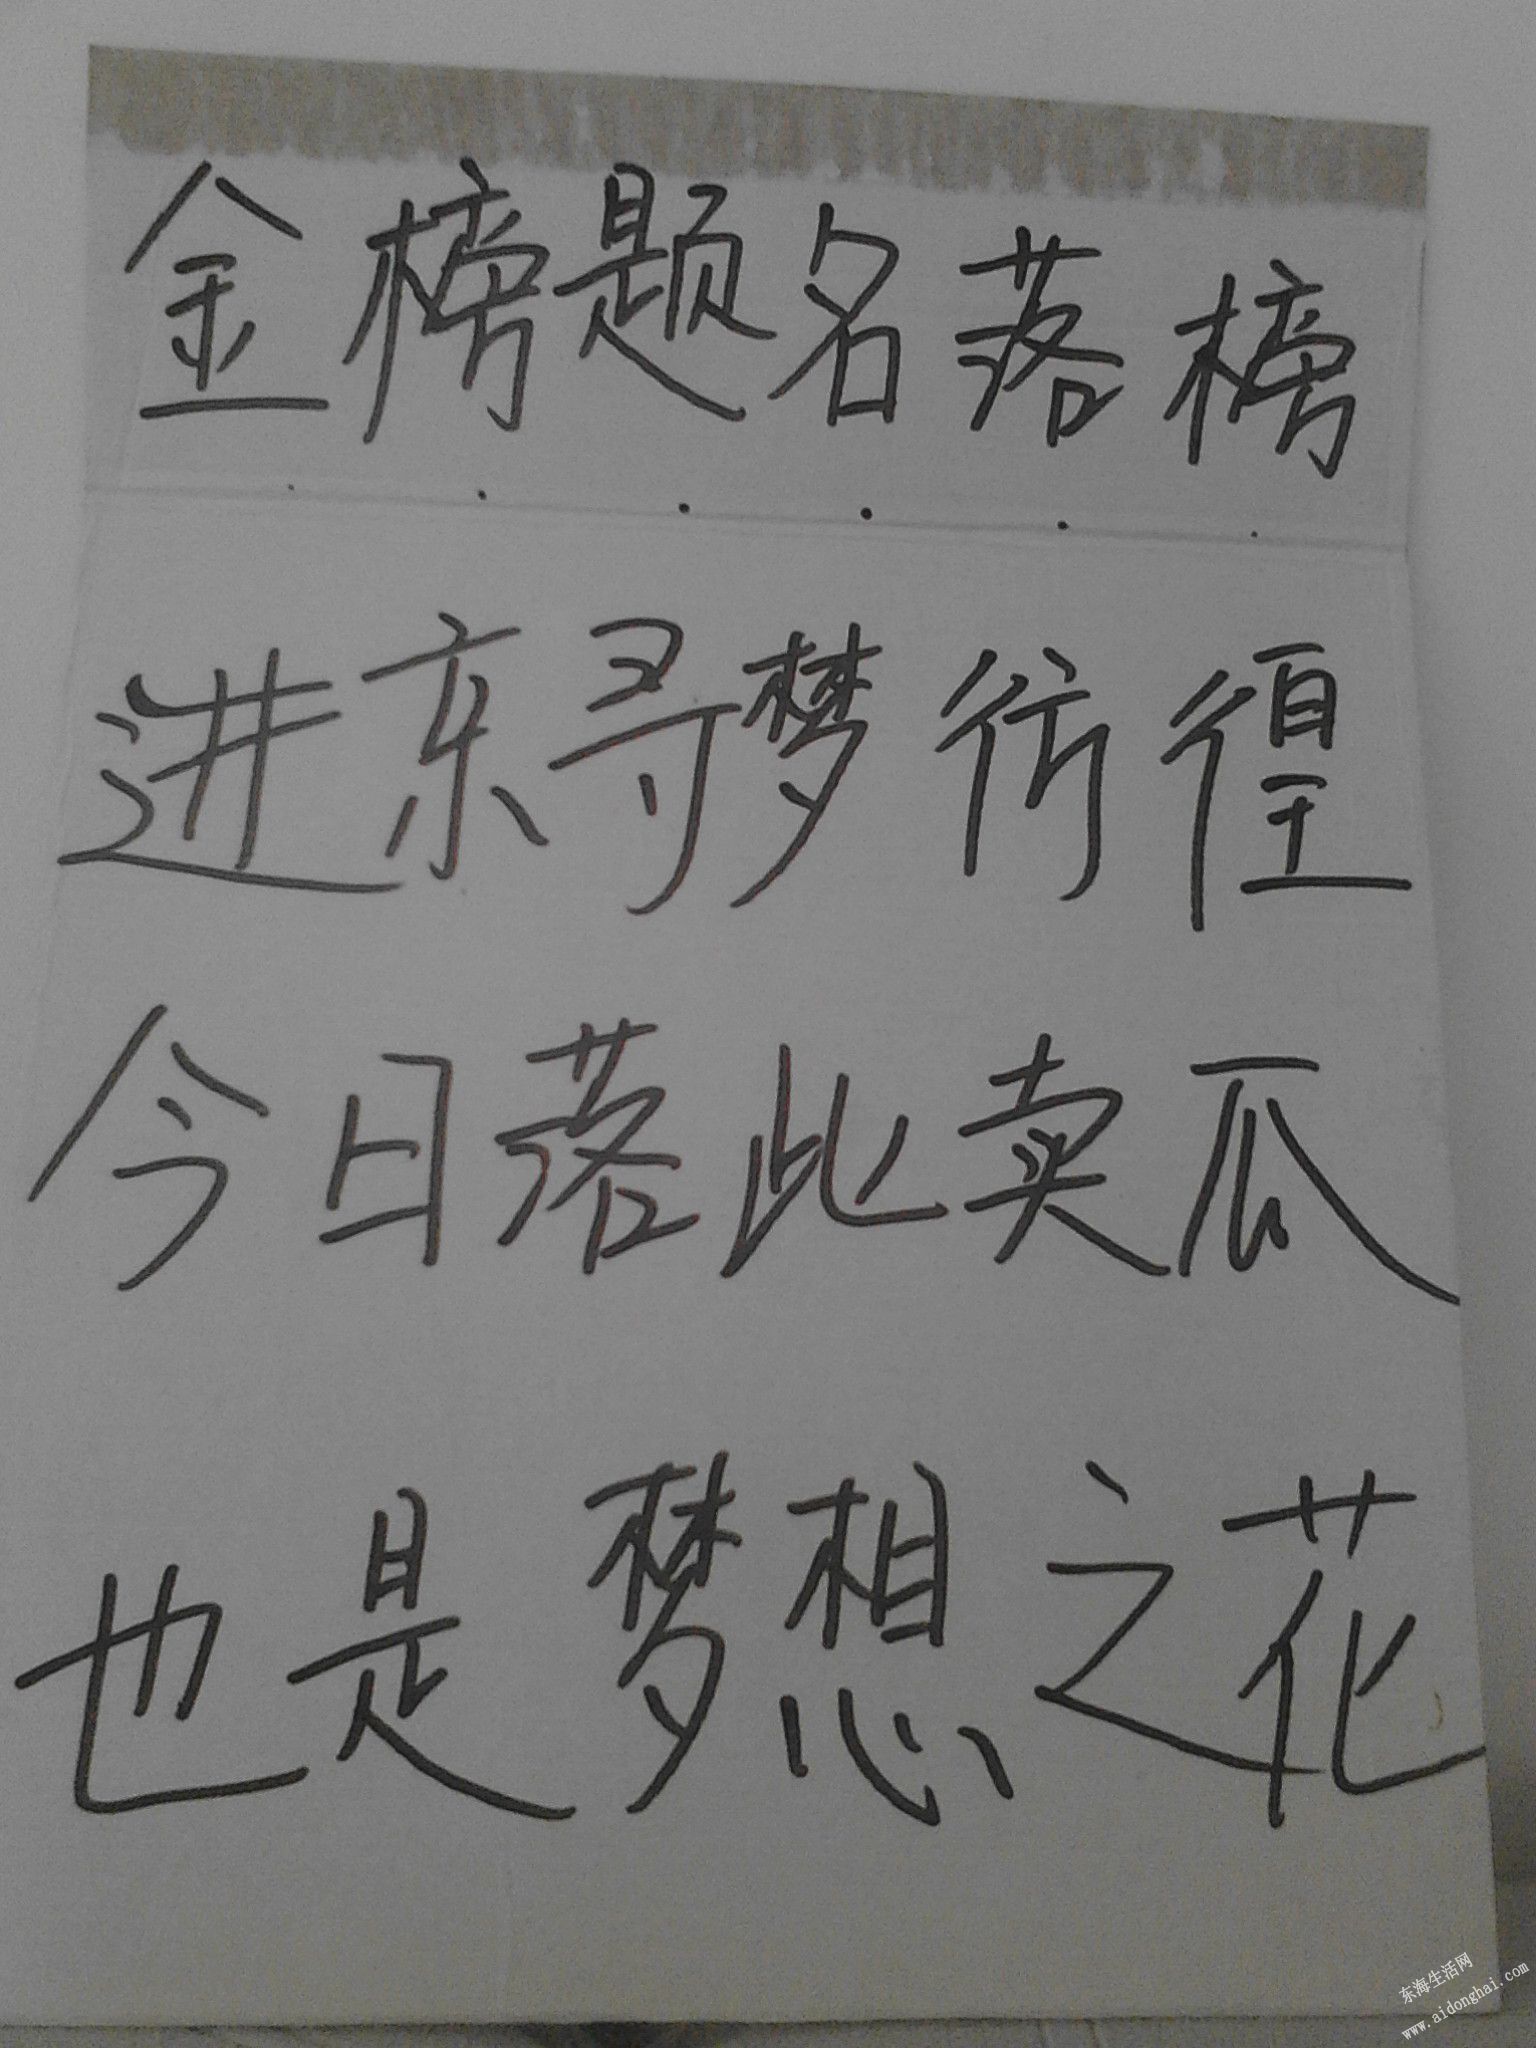 金榜题名落榜
......
进京寻梦彷徨
今日落此卖瓜
也是梦想之花
东海生活网
www.aidonghai.com